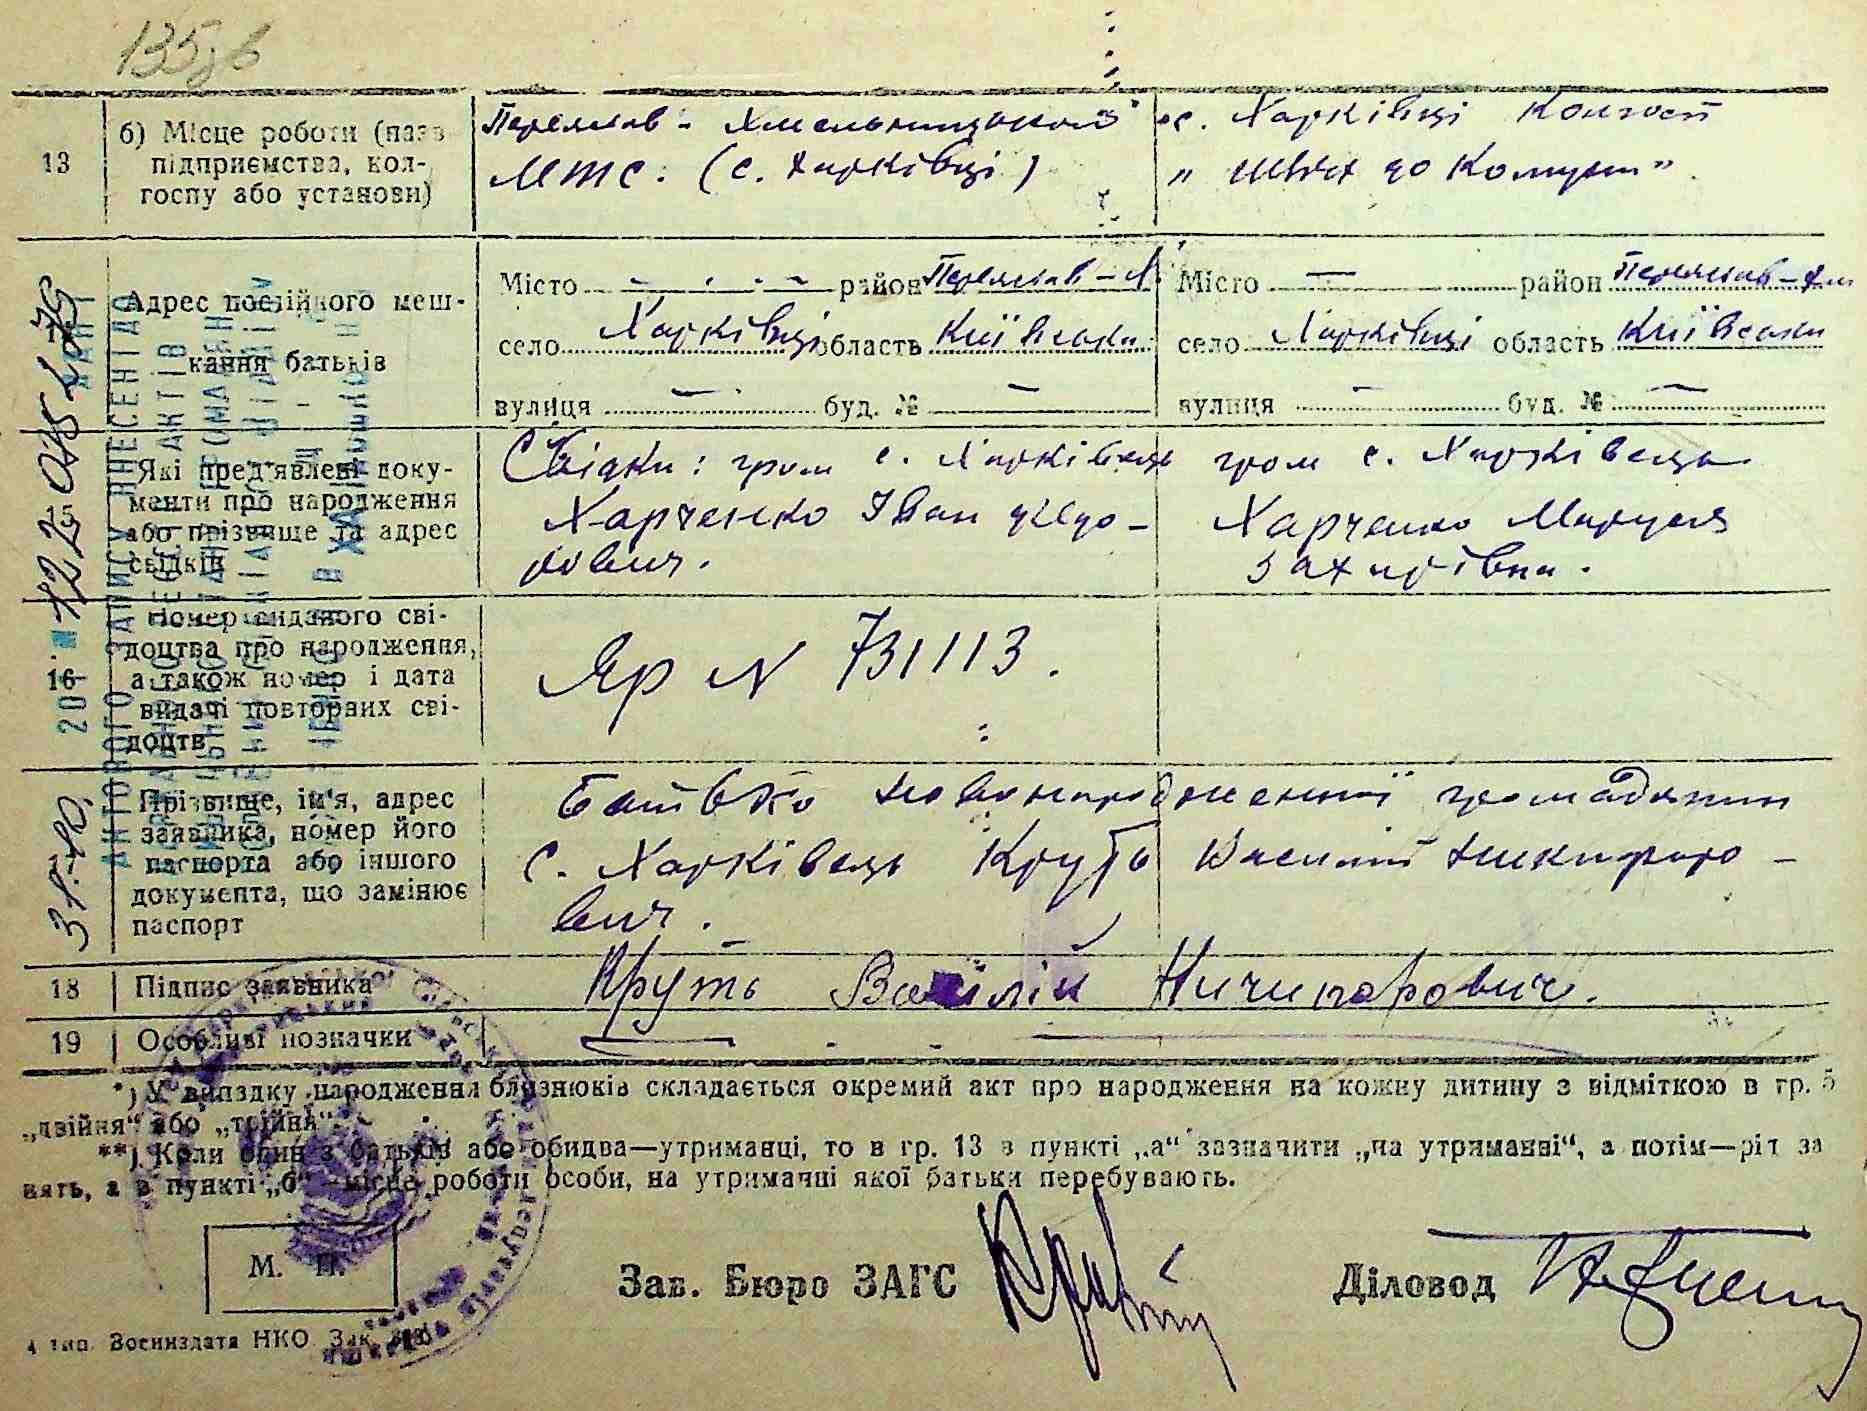 135зв
13
б) Місце роботи (назв
підприємства, кол-
госпу або установи)
Переяслав - Хмельницький
МТС. (с. Харківці)
с. Харківці Колгосп
„ Шлях до Комуни"
Адрес постійного меш-
кання батьків
Місто район Переяслав - Х
село Харківці область Київська
вулиця — буд. № —
Місто — район Переяслав - Хм
село Харківці область Київська
вулиця — буд. № —
15
Які пред'явлені доку-
менти про народження
або прізвище та адрес
свідків
Свідки: гром с. Харківець
Харченко Іван
ович.
гром с. Харківець
Харченко Маруся
Захарівна.
16
Номер виданого сві-
доцтва про народження,
а також номер і дата
видачі повторних сві-
доцтв
Яр N 731113.
Прізвище, ім'я, адрес
заявника, номер його
паспорта або іншого
документа, що замінює
паспорт
Батько новонародженної громадянин
с. Харківець Круть Василій Никифоро-
вич.
18
Підпис заявника
Круть Василій Ничипорович.
19
Особливі позначки
*) У випадку народження близнюків складається окремий акт про народження на кожну дитину з відміткою в гр. 5
„двійня" або „трійня".
**) Коли один з батьків або обидва—утриманці, то в гр. 13 в пункті „а" зазначити „на утриманні", а потім—ріт за
нять, а в пункті „б"—місце роботи особи, на утриманні якої батьки перебувають.
М. П.
Зав. Бюро ЗАГС
Діловод
4 тип. Воениздата НКО. Зак.